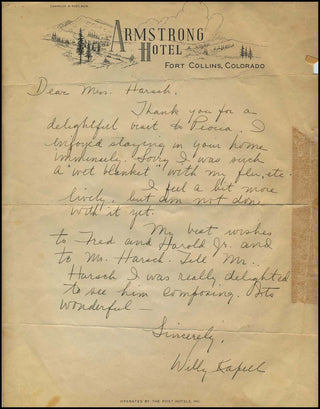 CHARLES H. POST, MGR.
ARMSTRONG
HOTEL
FORT COLLINS, COLORADO
Dear Mrs. Harsch.
Thank you for a
delightful visit to Peoria. I
enjoyed staying in your home
immensely. Sorry I was such
a "wet blanket" with my flu, etc.
I feel a bit more
lively, but am not done
with it yet.
My best wishes
to Fred and Harold Jr. and
to Mr. Harsch. Tell Mr.
Harsch I was really delighted
to see him composing. Its
wonderful —
Sincerely,
Willy Kapell
OPERATED BY THE POST HOTELS, INC.